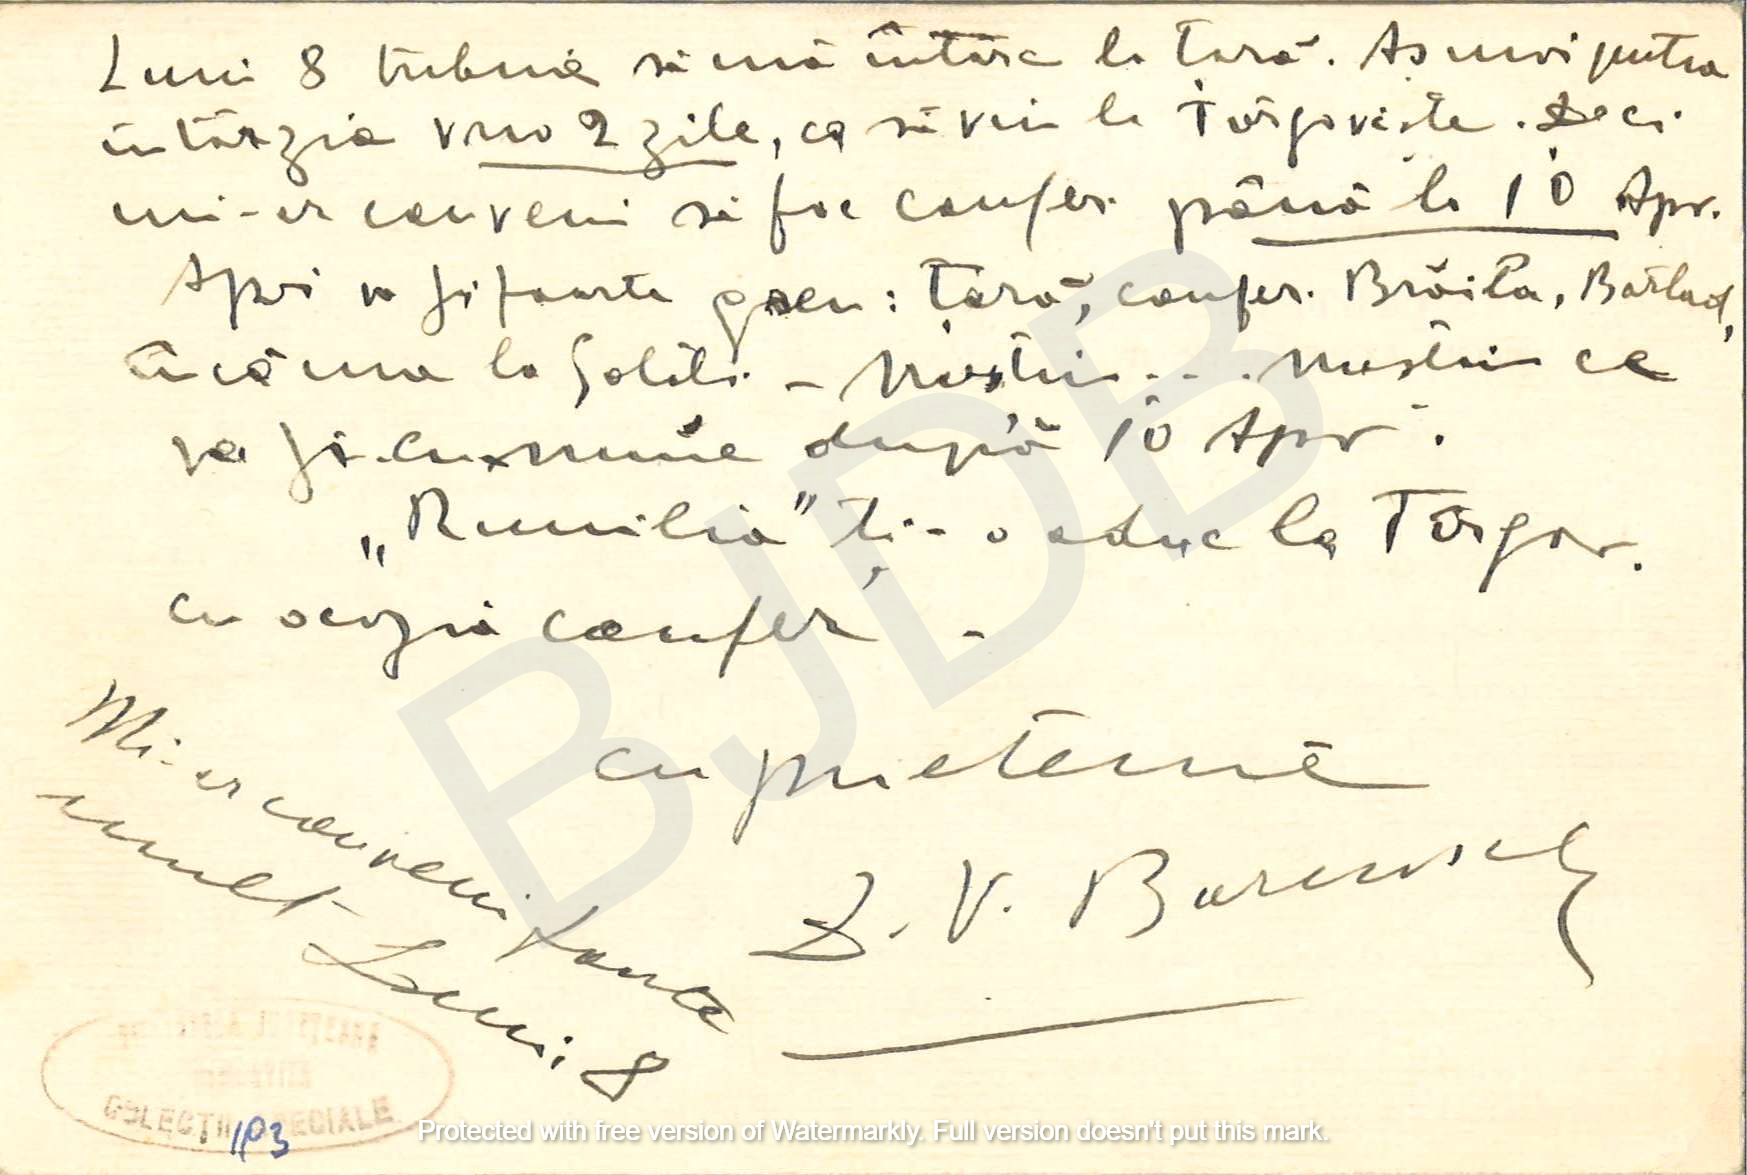 Luni 8 trebuie să mă întorc la țară. Aș mai putea
întârzia vreo 2 zile, ca să vin la Târgoviște. Deci
mi-ar conveni să fac confer. până la 10 Apr.
Apoi va fi foarte greu: țară, confer. Brăila, Bârlad,
încă una la Galați – Nu știu... Nu știu ce
va fi cu mine după 10 Apr.
„Rumilia” ți-o aduc la Târgov.
cu ocazia confer –
Mi-ar conveni foarte
mult Luni 8
cu prietenie
D. V. Barnoschi
COLECȚII SPECIALE
193
BJDB
Protected with free version of Watermarkly. Full version doesn't put this mark.